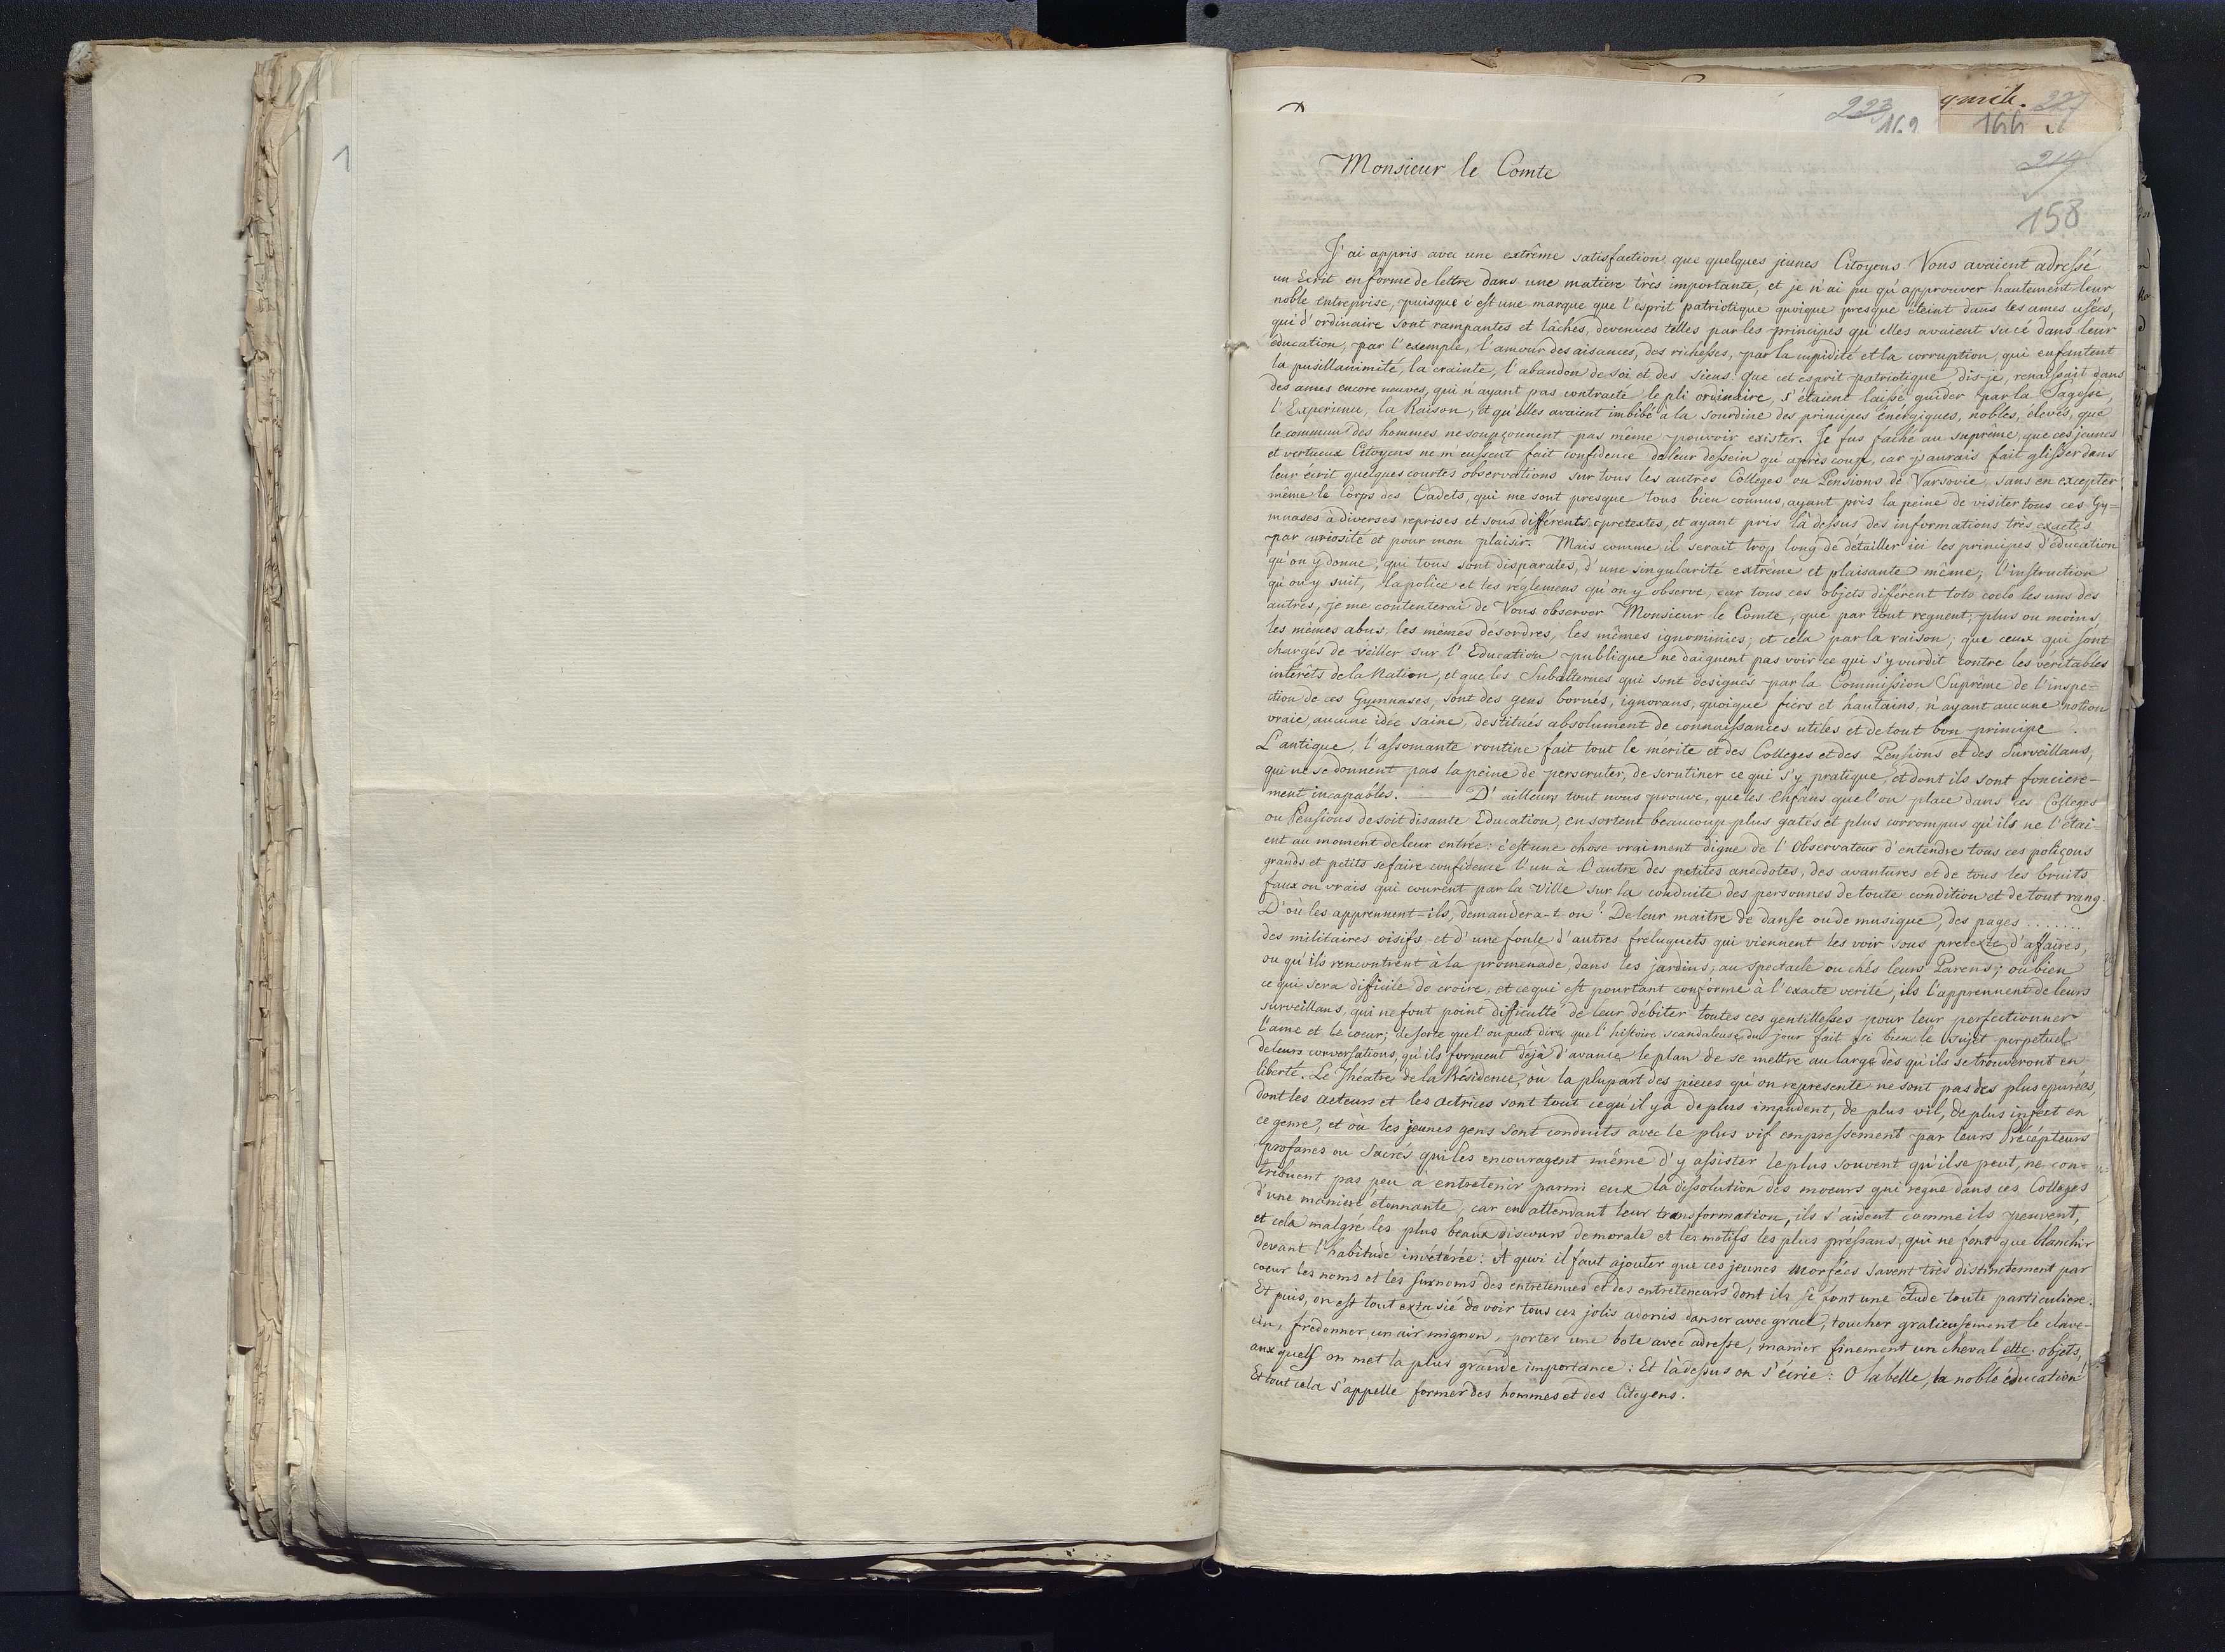 1
223
16.9
gmik. 227
166
219
158
Monsieur le Comte
J'ai appris avec une extrême satisfaction, que quelques jeunes Citoyens Vous avaient adressé
un Ecrit en forme de lettre dans une matiere très importante, et je n'ai pu qu'approuver hautement leur
noble entreprise, puisque c'est une marque que l'esprit patriotique quoique presque éteint dans les ames usées,
qui d'ordinaire sont rampantes et lâches, devenues telles par les principes qu'elles avaient sucé dans leur
éducation, par l'exemple, l'amour des aisances, des richesses, par la cupidité et la corruption, qui enfantent
la pusillanimité, la crainte, l'abandon de soi et des siens: que cet esprit patriotique, dis-je, renaissait dans
des ames encore neuves, qui n'ayant pas contracté le pli ordinaire, s'étaient laissé guider par la Sagesse,
l'Experience, la Raison, et qu'elles avaient imbibé à la sourdine des principes énérgiques, nobles, élevés, que
le commun des hommes ne soupçonnent pas même pouvoir exister. Je fus faché au suprême, que ces jeunes
et vertueux Citoyens ne m'eussent fait confidence de leur dessein qu'après coup, car j'aurais fait glisser dans
leur écrit quelques courtes observations sur tous les autres Colleges ou Pensions de Varsovie, sans en excepter
même le Corps des Cadets, qui me sont presque tous bien connus, ayant pris la peine de visiter tous ces Gy=
mnases à diverses reprises et sous différents pretextes, et ayant pris là dessus des informations très exactes
par curiosité et pour mon plaisir. Mais comme il serait trop long de détailler ici les principes d'éducation
qu'on y donne, qui tous sont disparates, d'une singularité extrême et plaisante même, l'instruction
qu'on y suit, la police et les réglemens qu'on y observe, car tous ces objets diférent toto coelo les uns des
autres, je me contenterai de Vous observer Monsieur le Comte, que par tout regnent, plus ou moins,
les mêmes abus, les mêmes désordres, les mêmes ignominies; et cela par la raison, que ceux qui sont
chargés de veiller sur l'Education publique ne daignent pas voir ce qui s'y ourdit contre les véritables
intérêts de la Nation, et que les Subalternes qui sont designés par la Commission Suprême de l'inspe=
ction de ces Gymnases, sont des gens bornés, ignorans, quoique fiers et hautains, n'ayant aucune notion
vraie, aucune idée saine, destitués absolument de connaissances utiles et de tout bon principe.
L'antique, l'assomante routine fait tout le mérite et des Colleges et des Pensions et des Surveillans,
qui ne se donnent pas la peine de perscruter, de scrutiner ce qui s'y pratique, et dont ils sont fonciere-
ment incapables. — D'ailleurs tout nous prouve, que les Enfans que l'on place dans les Colleges
ou Pensions de soit disante Education, en sortent beaucoup plus gatés et plus corrompus qu'ils ne l'étai-
ent au moment de leur entrée: c'est une chose vraiment digne de l'Observateur d'entendre tous ces poliçons
grands et petits se faire confidence l'un à l'autre des petites anecdotes, des avantures et de tous les bruits
faux ou vrais qui courent par la Ville sur la conduite des personnes de toute condition et de tout rang.
D'où les apprennent-ils, demandera-t-on? De leur maitre de danse ou de musique, des pages .......
des militaires oisifs et d'une foule d'autres freluquets qui viennent les voir sous pretexte d'affaires,
ou qu'ils rencontrent à la promenade, dans les jardins, au spectacle ou chés leurs Parens; ou bien
ce qui sera dificile de croire, et ce qui est pourtant conforme à l'exacte verité, ils l'apprennent de leurs
surveillans, qui ne font point difficulté de leur débiter toutes ces gentillesses pour leur perfectionner
l'ame et le coeur; de sorte que l'on peut dire que l'histoire scandaleuse du jour fait si bien le sujet perpetuel
de leurs conversations, qu'ils forment déjà d'avance le plan de se mettre au large dès qu'ils se trouveront en
liberté. Le Théatre de la Résidence, où la plupart des pieces qu'on represente ne sont pas des plus epurées,
dont les acteurs et les actrices sont tout ce qu'il y a de plus impudent, de plus vil, de plus infect en
ce genre, et où les jeunes gens sont conduits avec le plus vif empressement par leurs Précépteurs
profanes ou Sacrés qui les encouragent même d'y assister le plus souvent qu'il se peut, ne con=
tribuent pas peu à entretenir parmi eux la dissolution des moeurs qui regne dans ces Colleges
d'une maniere étonnante, car en attendant leur transformation, ils s'aident comme ils peuvent,
et cela malgré les plus beaux discours de morale et les motifs les plus préssans, qui ne font que blanchir
devant l'habitude invétérée: À quoi il faut ajouter que ces jeunes Morfées savent très distinctement par
coeur les noms et les surnoms des entretenues et des entreteneurs dont ils se font une étude toute particuliere.
Et puis, on est tout extasié de voir tous ces jolis adonis danser avec grace, toucher gratieusement le clave-
cin, fredonner un air mignon, porter une bote avec adresse, manier finement un cheval etc: objets,
auxquels on met la plus grande importance: Et là dessus on s'écrie: O la belle, la noble éducation!
Et tout cela s'appelle former des hommes et des Citoyens.